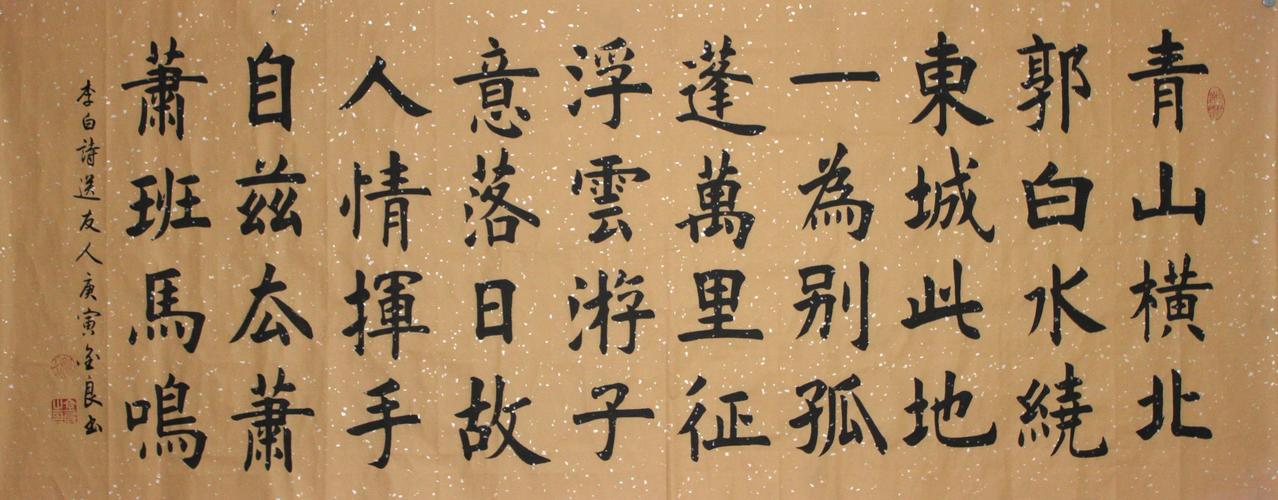 青山横北
郭白水繞
東城此地
一為别孤
蓬萬里征
浮雲游子
意落日故
人情揮手
自兹厺蕭
蕭班馬鳴
李白詩送友人庚寅金良书